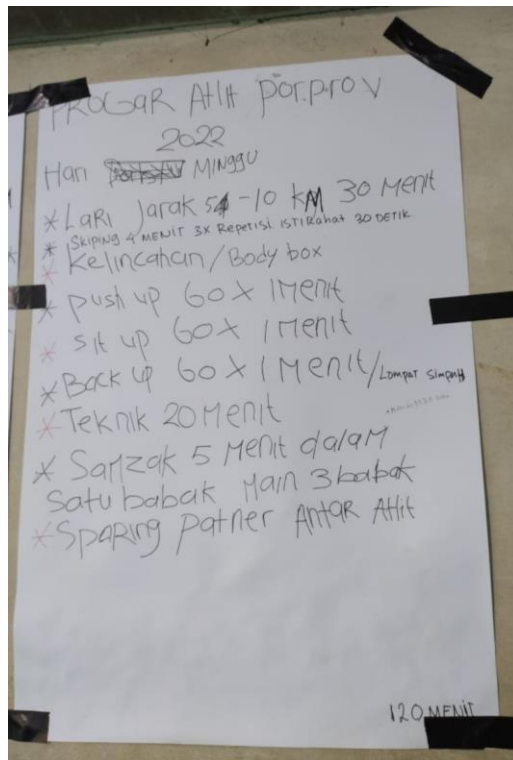 PROGAR Atlit por.prov
2022
Hari MINGGU
* LaRi Jarak 5 -10 KM 30 Menit
* Skiping 4 MENIT 3X Repetisi ISTIRahat 30 DETIK
* Kelincahan/Body box
* push up 60 X 1 Menit
* sit up 60 X 1 Menit
* Back up 60 X 1 Menit/Lompat simpul
* Teknik 20 Menit
* Samzak 5 Menit dalam
satu babak Main 3 babak
* Sparing patner Antar Atlit
120 MENIT